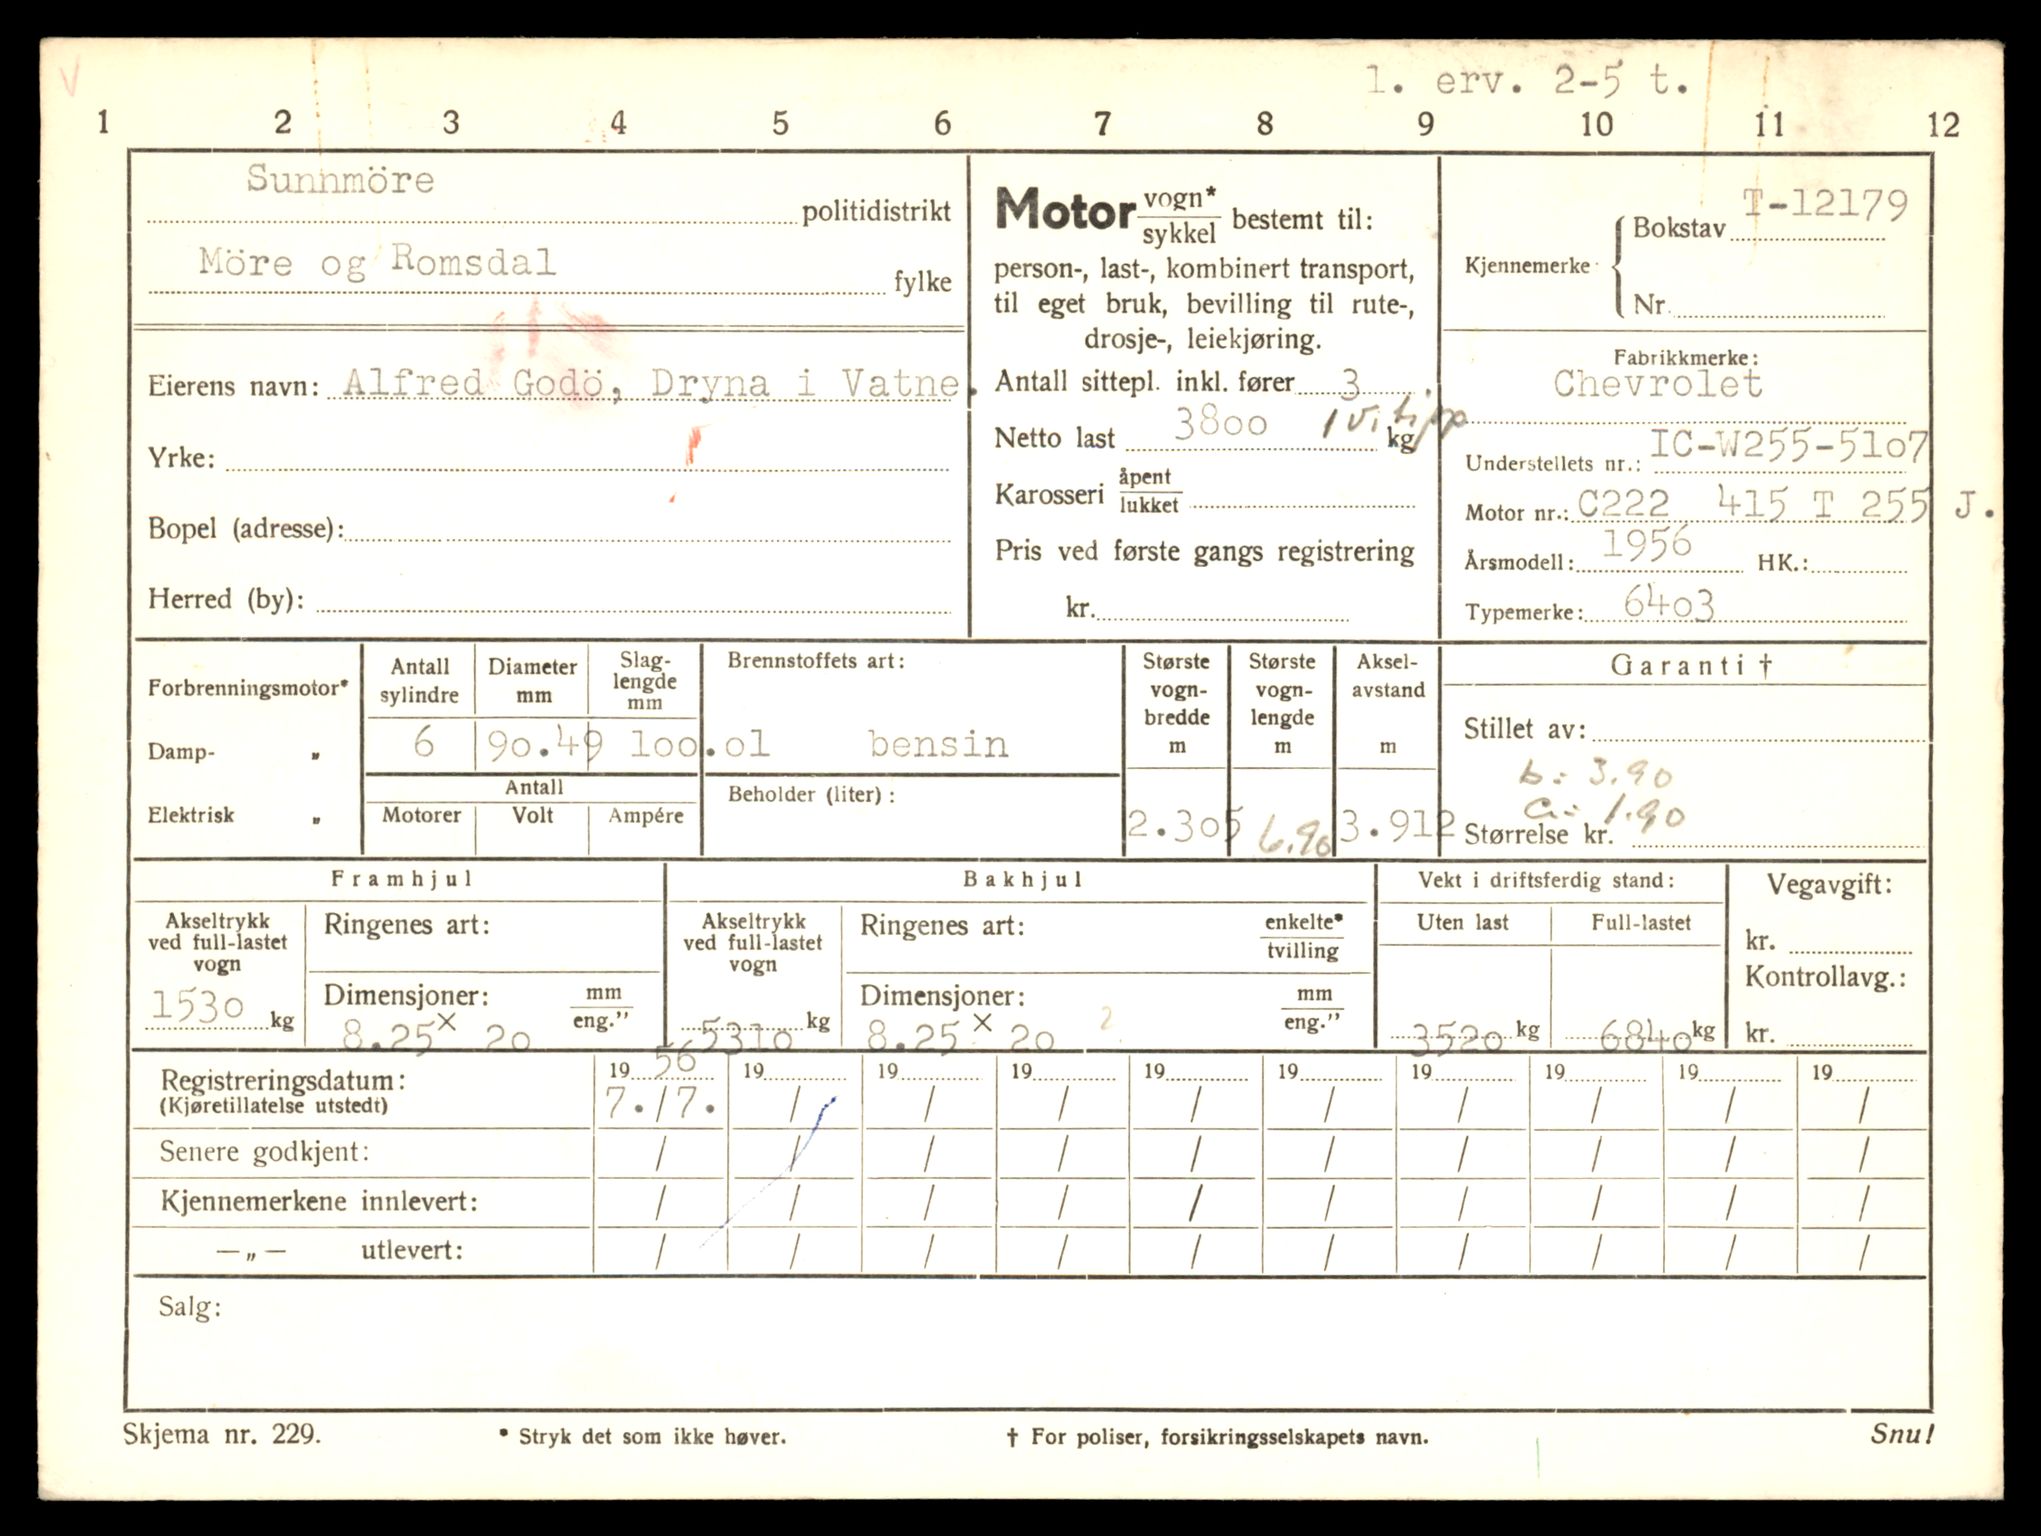 1. erv. 2-5 t.
1 2 3 4 5 6 7 8 9 10 11 12
Sunnmöre politidistrikt
Möre og Romsdal fylke
Eierens navn: Alfred Godö, Dryna i Vatne.
Yrke:
Bopel (adresse):
Herred (by):
Motor vogn* / sykkel bestemt til:
person-, last-, kombinert transport,
til eget bruk, bevilling til rute-,
drosje-, leiekjøring.
Antall sittepl. inkl. fører 3
Netto last 3800 kg 1 v. tipp
Karosseri åpent / lukket
Pris ved første gangs registrering
kr.
Kjennemerke { Bokstav T-12179
Nr.
Fabrikkmerke:
Chevrolet
Understellets nr.: IC-W255-5107
Motor nr.: C222 415 T 255 J.
Årsmodell: 1956 HK.:
Typemerke: 6403
Forbrenningsmotor*
Damp- „
Elektrisk „
Antall sylindre
Diameter mm
Slag-
lengde
mm
6 90.49 100.01
Antall
Motorer Volt Ampére
Brennstoffets art:
bensin
Beholder (liter):
Største
vogn-
bredde
m
2.305
Største
vogn-
lengde
m
6.90
Aksel-
avstand
m
3.912
Garanti †
Stillet av:
b: 3.90
a: 1.90
Størrelse kr.
Framhjul
Akseltrykk
ved full-lastet
vogn
1530 kg
Ringenes art:
Dimensjoner: mm / eng."
8.25 x 20
Bakhjul
Akseltrykk
ved full-lastet
vogn
5310 kg
Ringenes art: enkelte* / tvilling
Dimensjoner: mm / eng."
8.25 x 20 2
Vekt i driftsferdig stand:
Uten last Full-lastet
3520 kg 6840 kg
Vegavgift:
kr.
Kontrollavg.:
kr.
Registreringsdatum: 19 56 19 19 19 19 19 19 19 19 19
(Kjøretillatelse utstedt) 7./7. / / / / / / / / /
Senere godkjent: / / / / / / / / / /
Kjennemerkene innlevert: / / / / / / / / / /
—„— utlevert: / / / / / / / / / /
Salg:
Skjema nr. 229. * Stryk det som ikke høver. † For poliser, forsikringsselskapets navn. Snu!